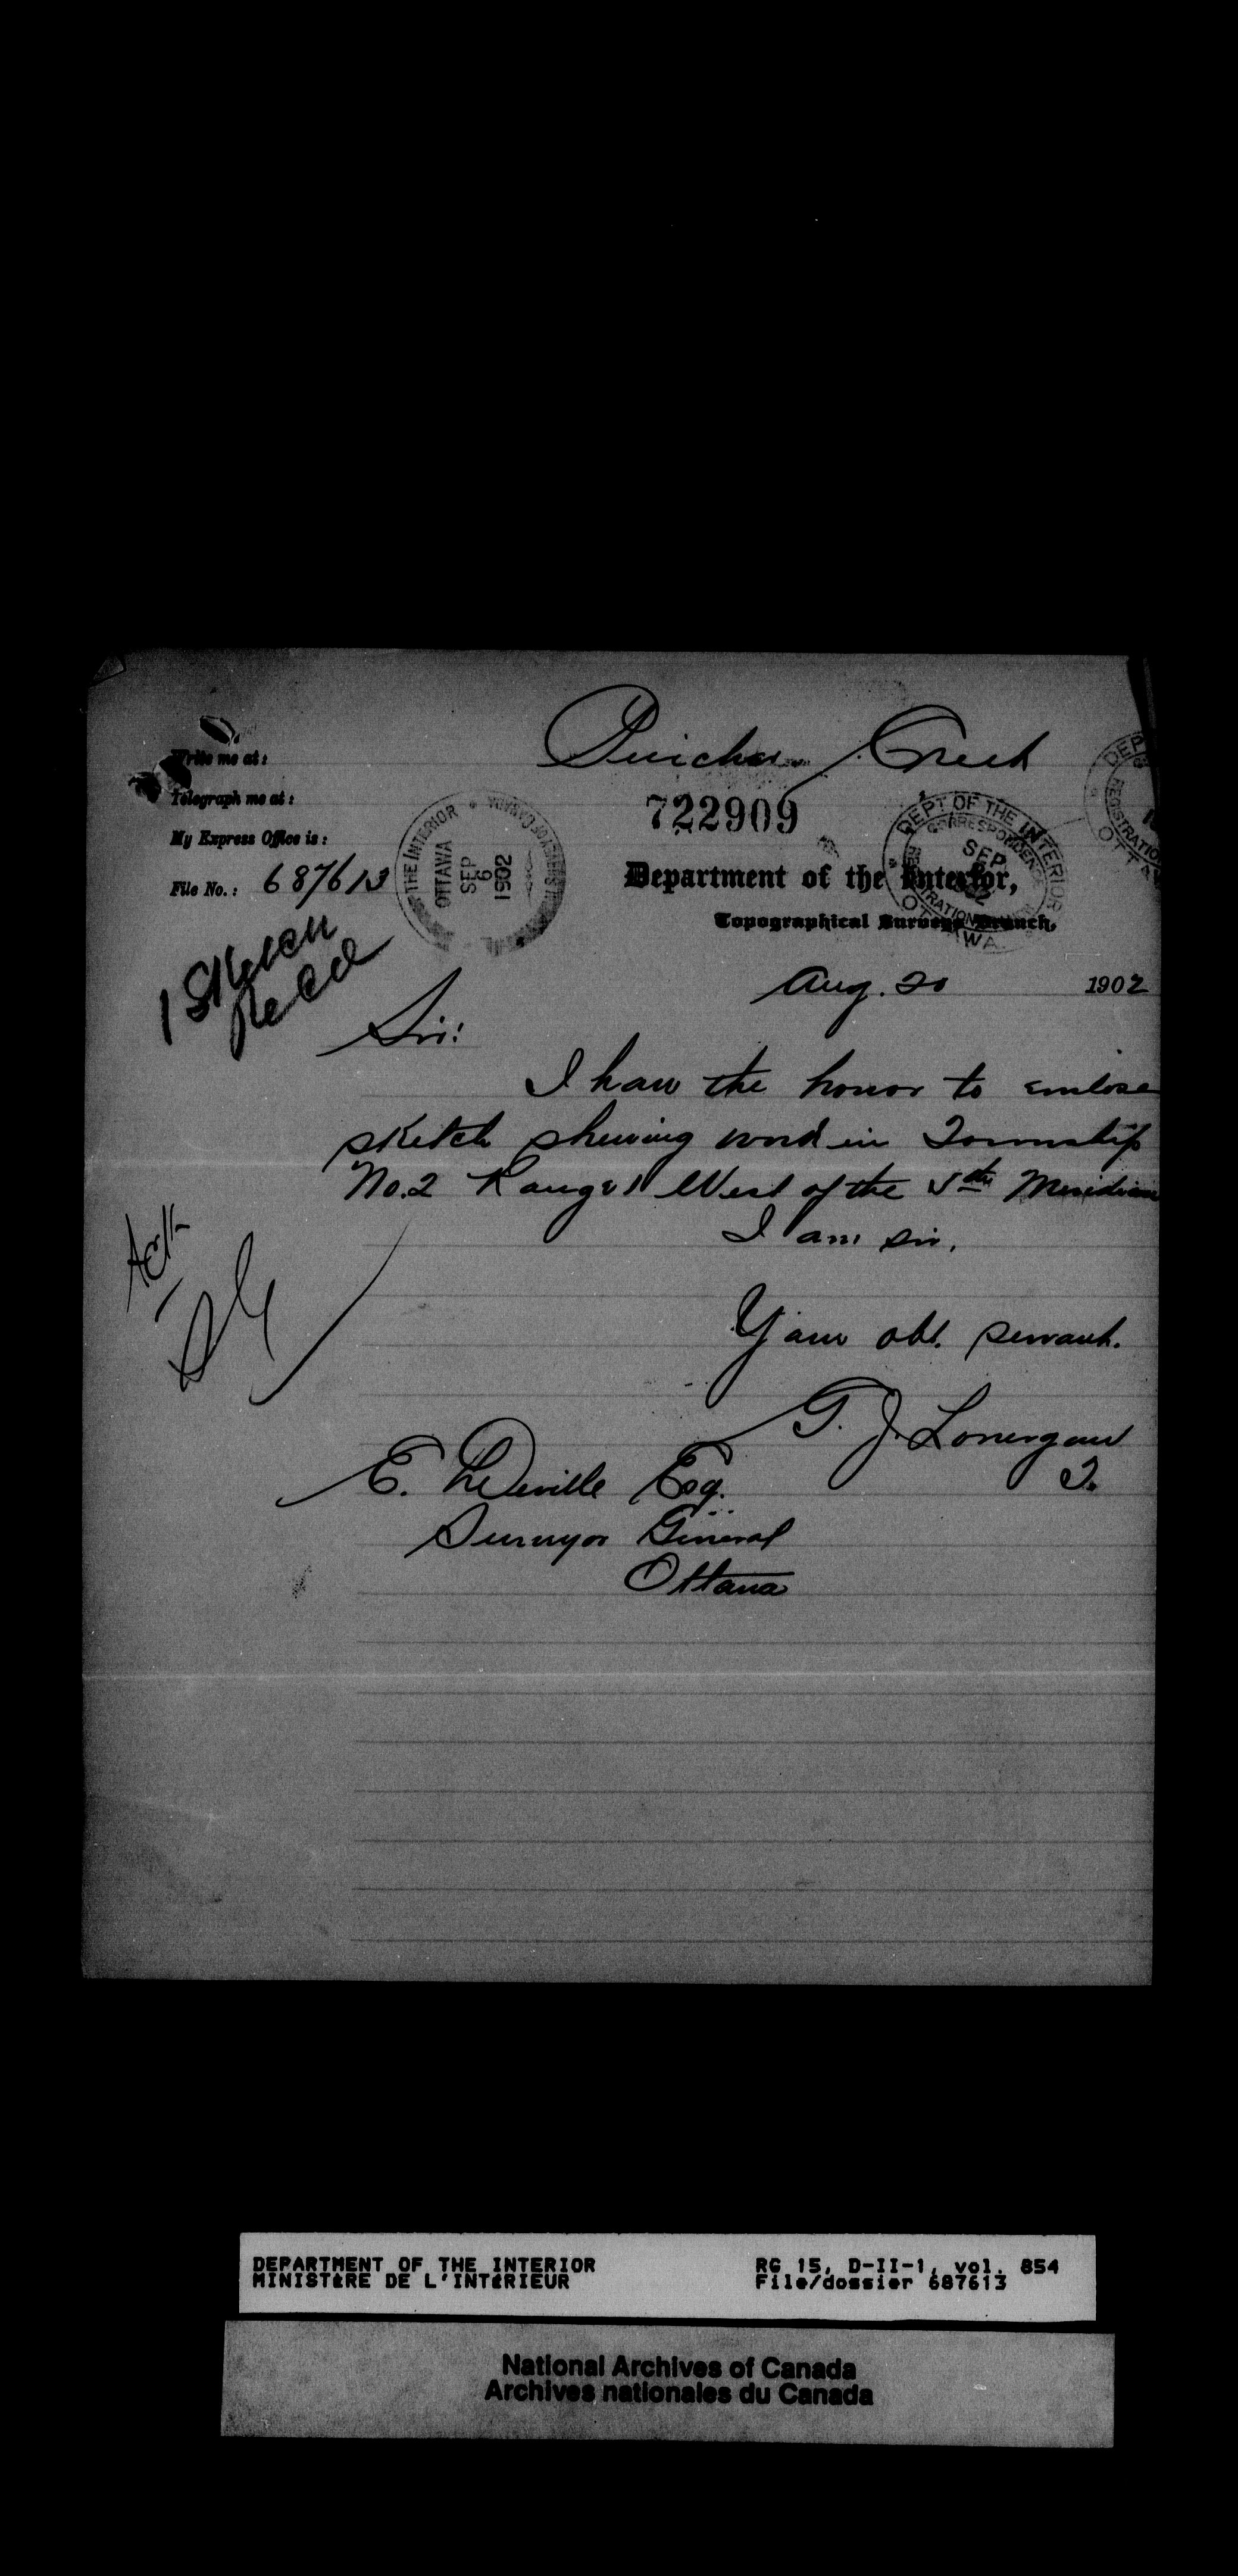 Pincher Creek
Write me at:
Telegraph me at:
My Express Office is:
File No.: 687613
722909
THE INTERIOR
OTTAWA
SEP
6
1902
DEPT OF THE INTERIOR
CORRESPONDENCE
SEP
REGISTRATION
OTTAWA
Department of the Interior,
Topographical Surveys Branch,
1 Sketch
Recd
Aug. 20 1902
Sir:
I have the honor to enclose
sketch shewing work in Township
No. 2 Range 1 West of the 5th Meridian
I am sir,
Ack
Your obt. servant.
G. J. Lonergan
E. Deville Esq.
Surveyor General
Ottawa
DEPARTMENT OF THE INTERIOR RG 15, D-II-1, vol. 854
MINISTÈRE DE L'INTÉRIEUR File/dossier 687613
National Archives of Canada
Archives nationales du Canada